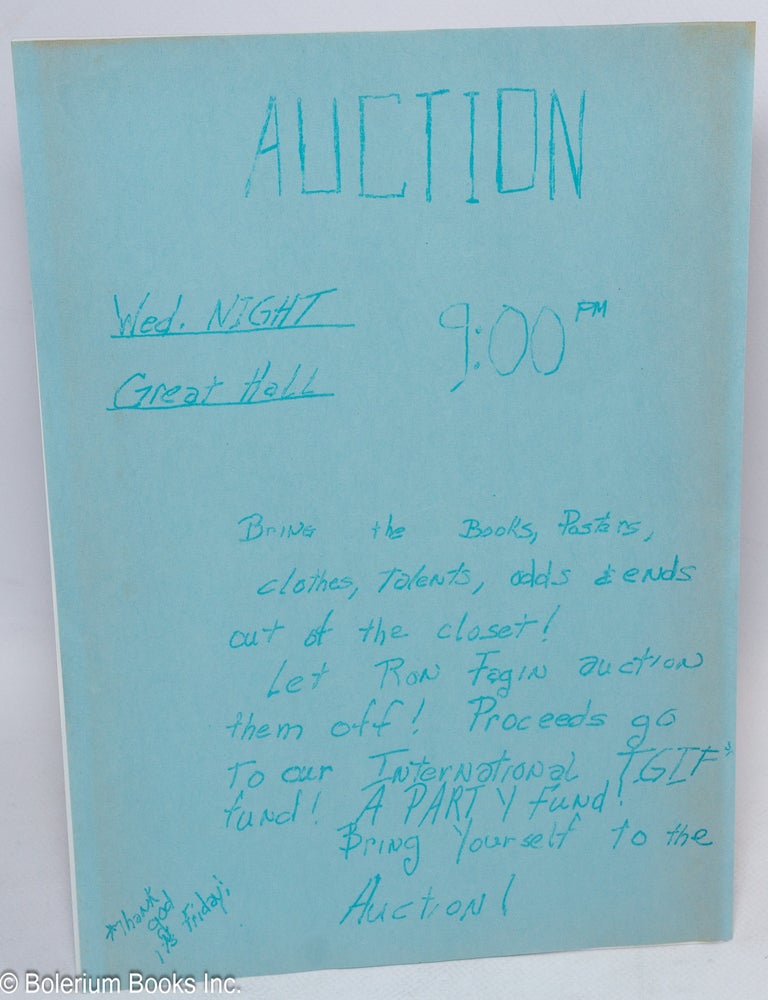 AUCTION
Wed. NIGHT 9:00 PM
Great Hall
Bring the Books, Posters,
clothes, Talents, odds & ends
out of the closet!
Let Ron Fegin auction
them off! Proceeds go
To our International TGIF*
fund! A PARTY Fund!
Bring Yourself to the
Auction!
*Thank
god
it's Friday!
© Bolerium Books Inc.